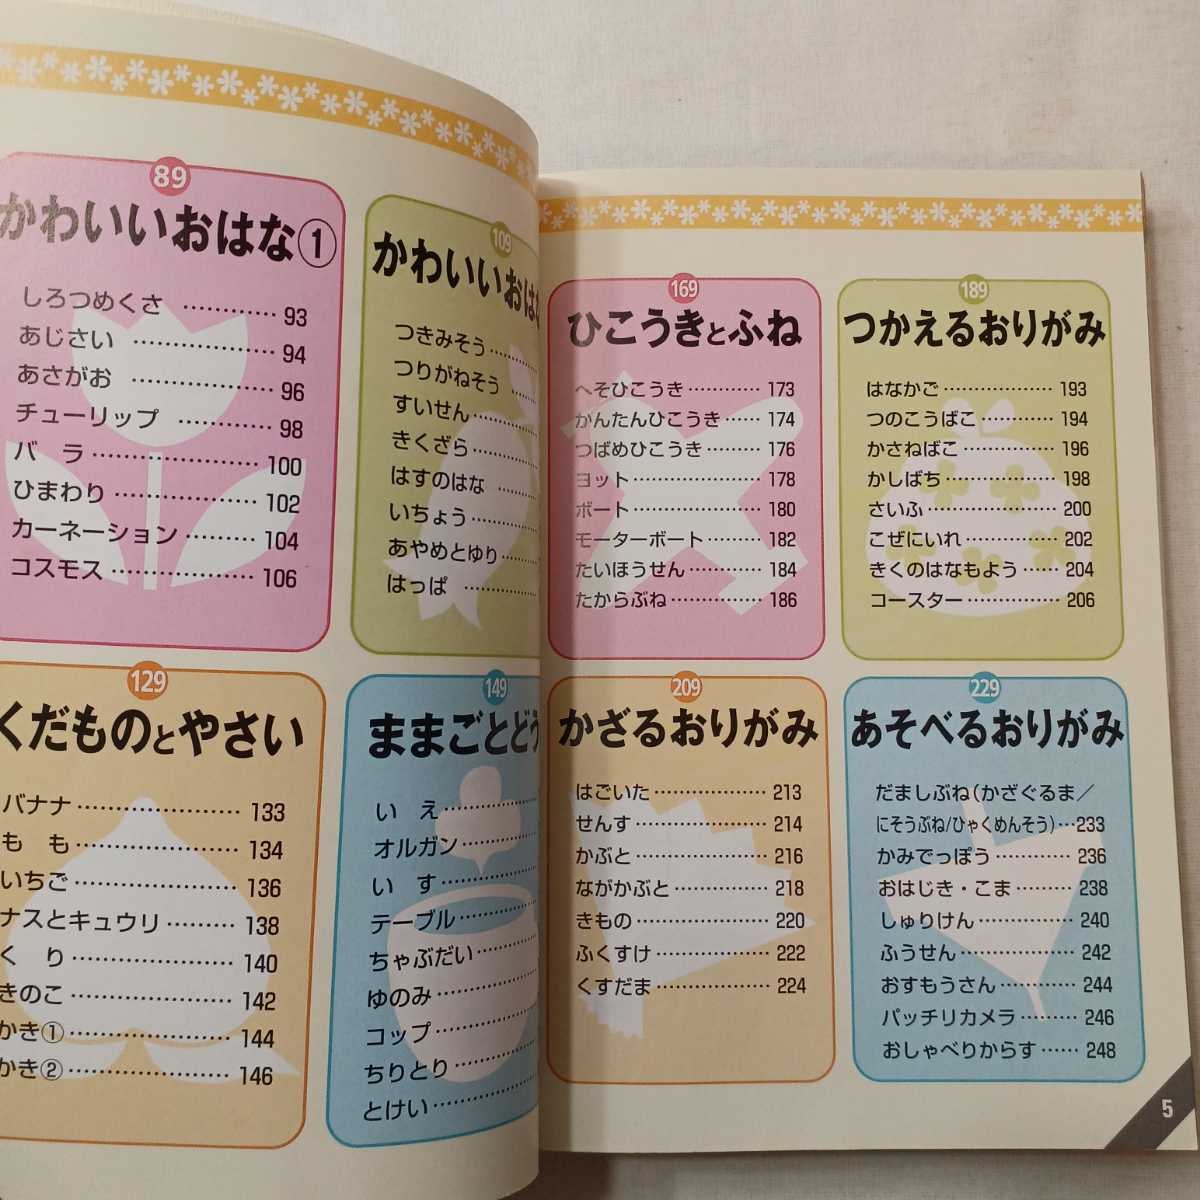 89
かわいいおはな①
しろつめくさ ………… 93
あじさい ……………… 94
あさがお ……………… 96
チューリップ ………… 98
バ ラ ………………… 100
ひまわり ……………… 102
カーネーション ……… 104
コスモス ……………… 106
109
かわいいおは
つきみそう……
つりがねそう ……
すいせん………
きくざら………
はすのはな ……
いちょう………
あやめとゆり……
はっぱ ………
129
くだものとやさい
バナナ………………… 133
も も ………………… 134
いちご………………… 136
ナスとキュウリ……… 138
く り ………………… 140
きのこ………………… 142
かき①………………… 144
かき②………………… 146
149
ままごとどう
い え…………
オルガン………
い す…………
テーブル………
ちゃぶだい……
ゆのみ…………
コップ…………
ちりとり………
とけい…………
169
ひこうきとふね
へそひこうき………… 173
かんたんひこうき…… 174
つばめひこうき……… 176
ヨット………………… 178
ボート………………… 180
モーターボート……… 182
たいほうせん………… 184
たからぶね…………… 186
189
つかえるおりがみ
はなかご……………… 193
つのこうばこ………… 194
かさねばこ…………… 196
かしばち……………… 198
さいふ………………… 200
こぜにいれ…………… 202
きくのはなもよう…… 204
コースター…………… 206
209
かざるおりがみ
はごいた……………… 213
せんす………………… 214
かぶと………………… 216
ながかぶと…………… 218
きもの………………… 220
ふくすけ……………… 222
くすだま……………… 224
229
あそべるおりがみ
だましぶね（かざぐるま／
にそうぶね/ひゃくめんそう）…233
かみでっぽう………… 236
おはじき・こま……… 238
しゅりけん…………… 240
ふうせん……………… 242
おすもうさん………… 244
パッチリカメラ……… 246
おしゃべりからす…… 248
5